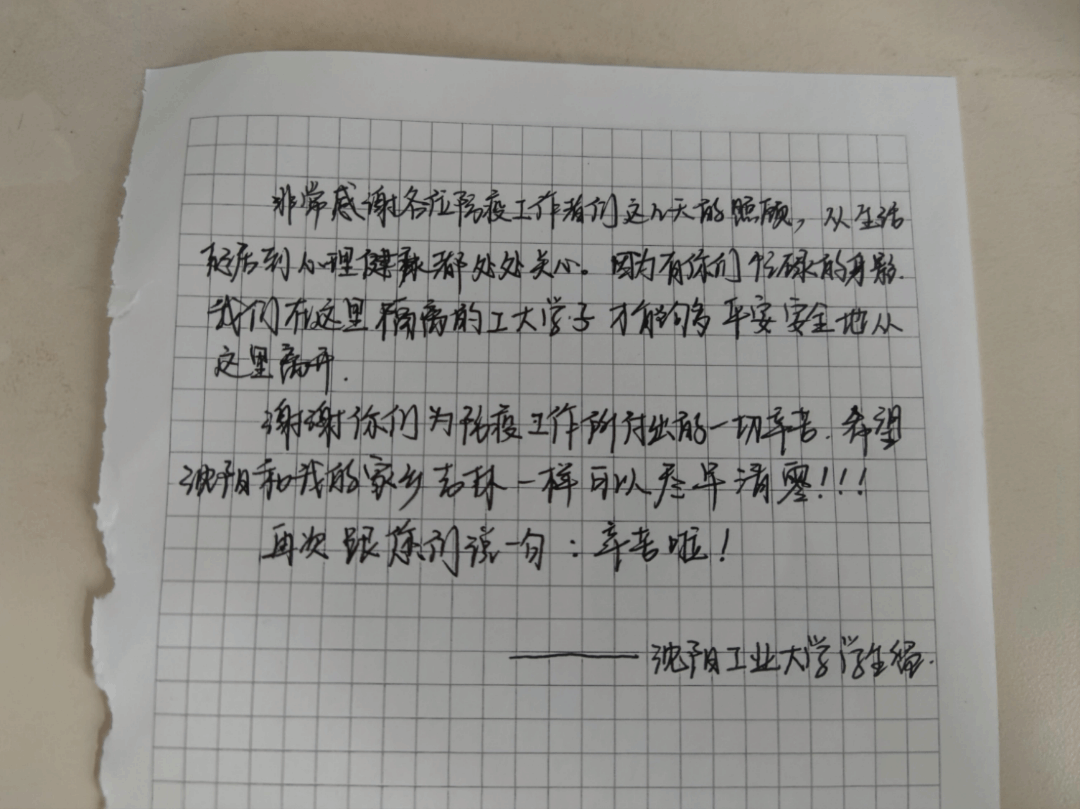 非常感谢各位防疫工作者们这几天的照顾，从生活
起居到心理健康都处处关心。因为有你们忙碌的身影.
我们在这里隔离的工大学子才能够平平安安全地从
这里离开.
谢谢你们为防疫工作所付出的一切辛苦.希望
沈阳和我的家乡吉林一样可以尽早清零!!!
再次跟您们说一句：辛苦啦!
——沈阳工业大学学生